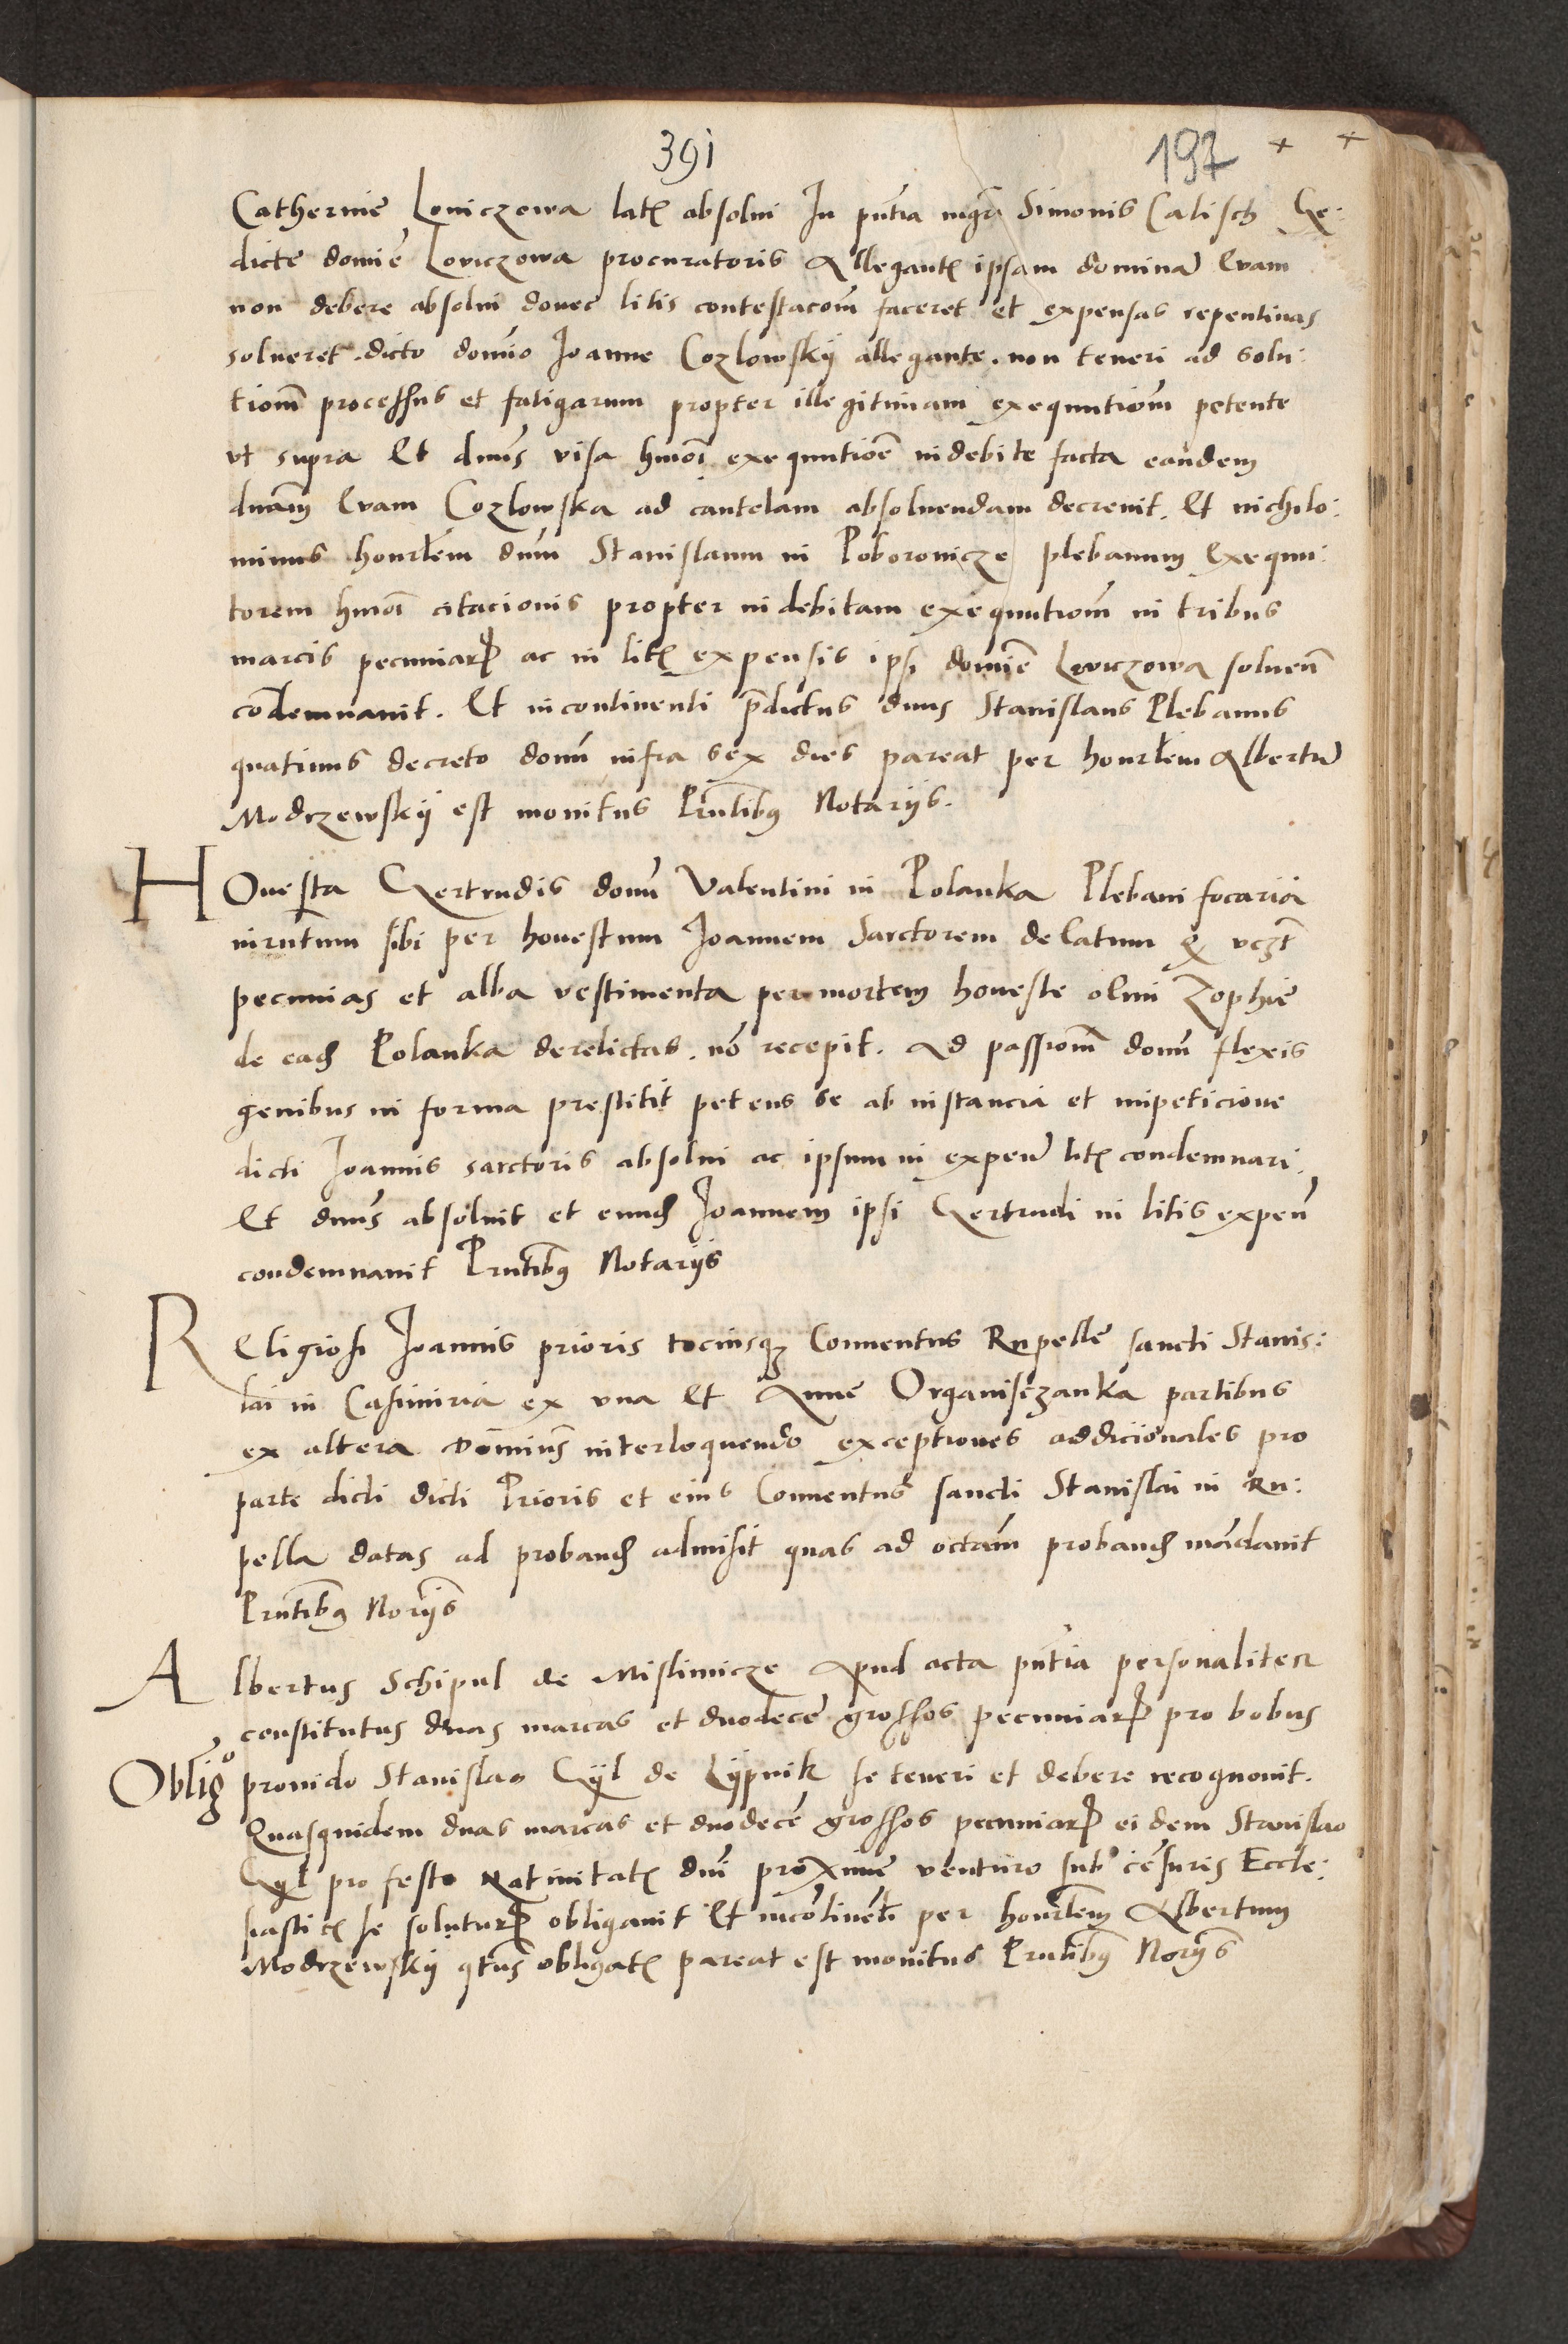 391
197 + +
Catherinē Loviczowa latę absolvi In pn̄tia mgr̄i Simonis Calisch
dictē domiē Loviczowa procuratoris Allegantę ipsam dominā Evam
non debere absolvi donec litis contestacōm faceret et expensas repentinas
solveret. dicto domīo Joanne Cozlowskÿ allegante. non teneri ad solu:
tionē processus et fatigarum propter illegitimam exequutiōm petente
vt supra Et dnūs visa hmōi exequutiōē indebite facta eandem
dnām Evam Cozlowska ad cautelam absolvendam decrevit. Et nichilo:
minus honrłem dūm Stanislaum in Poboroviczе plebanum Exequu:
torem hmōi citacionis propter indebitam exequutiōm in tribus
marcis pecuniarꝝ ac in litę expensis ipsi domiē Loviczowa solvēn
cōdemnavit. Et incontinenti p̄dictus dnūs Stanislaus Plebanus
quatinus decreto domī infra sex dies pareat per honrłem Albertū
Modrzewskÿ est monitus Prn̄tibꝯ Notarÿs.
HOnesta Gertrudis domī Valentini in Polanka Plebani focaria
iurutum sibi per honestum Joannem Sarctorem delatum
pecunias et alba vestimenta per mortem honeste olim Zophiē
de eadꝫ Polanka derelictas. nō recepit. Ad passionē domī flexis
genibus in forma prestitit petens se ab instancia et impeticione
dicti Joannis sarctoris absolvi ac ipsum in expen̄ litę condemnari.
Et dnūs absolvit et eundꝫ Joannem ipsi Gertrudi in litis expen̄
condemnavit Prn̄tibꝯ Notarÿs
REligiosi Joannis prioris tociusqꝫ Conventus Rupellē sancti Stanis:
lai in Casimiria ex vna Et Annē Organisczanka partibus
ex altera Dōminūs interloquendo exceptiones addicionales pro
parte dicti dicti Prioris et eius Conventus sancti Stanislai in Ru:
pella datas ad probandꝫ admisit quas ad octām probandꝫ mādavit
Prn̄tibꝯ Norÿs
Albertus Schipul de Mislimicze Apud acta pn̄tia personaliter
constitutus duas marcas et duodecē grossos pecuniarꝝ pro bobus
Obligᵒ provido Stanislao Gÿl de Lÿpnik se teneri et debere recognovit.
Quasquidem duas marcas et duodecē grossos pecuniarꝝ eidem Stanislao
Gÿl pro festo Nativitatę dnī proximē venturo sub cēsuris Eccle:
siasticę se soluturꝝ obligavit Et incōtinēti per honrłem Albertum
Modrzewskÿ qtn̄s obligatę pareat est monitus Prn̄tibꝯ Norÿs